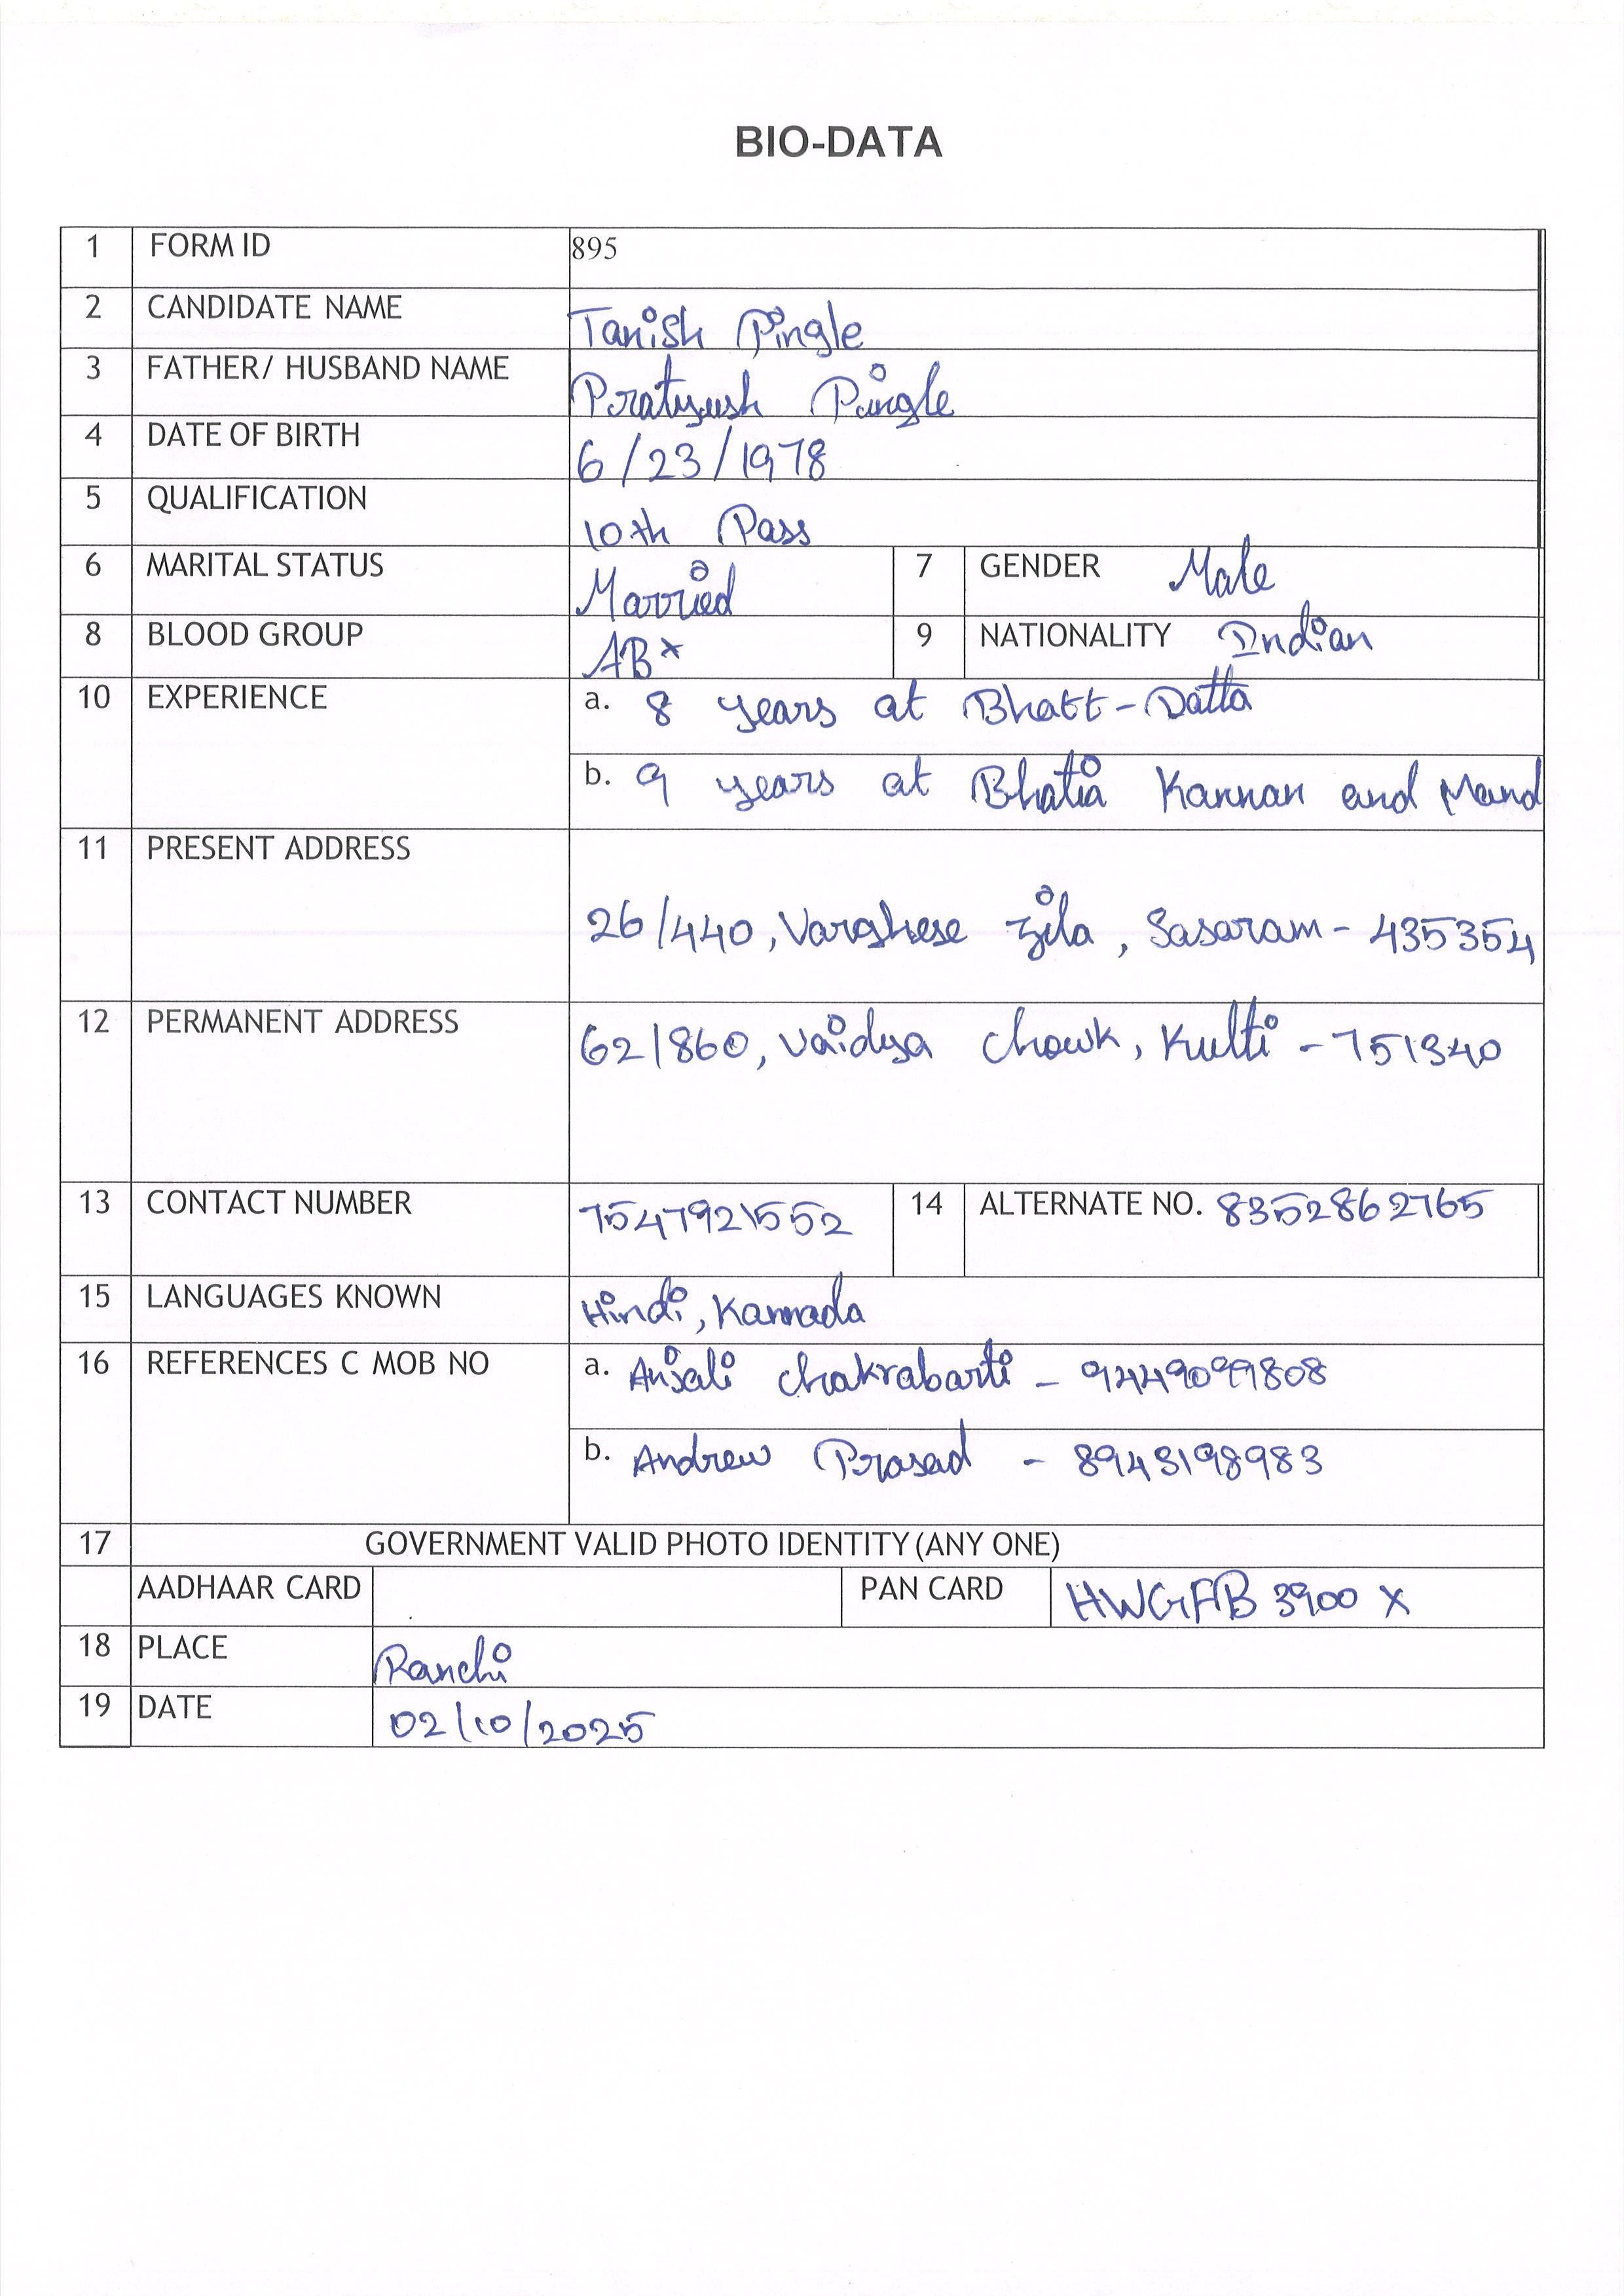 BIO-DATA
1 FORM ID 895
2 CANDIDATE NAME Tanish Pingle
3 FATHER/ HUSBAND NAME Pratyush Pingle
4 DATE OF BIRTH 6/23/1978
5 QUALIFICATION 10th Pass
6 MARITAL STATUS Married 7 GENDER Male
8 BLOOD GROUP AB+ 9 NATIONALITY Indian
10 EXPERIENCE a. 8 years at Bhatt-Datta
b. 9 years at Bhatia Kannan and Mand
11 PRESENT ADDRESS
26/440, Varghese Zila, Sasaram - 435354
12 PERMANENT ADDRESS 62/860, Vaidya Chowk, Kulti - 751340
13 CONTACT NUMBER 7547921552 14 ALTERNATE NO. 8352862765
15 LANGUAGES KNOWN Hindi, Kannada
16 REFERENCES C MOB NO a. Anjali Chakrabarti - 9449099808
b. Andrew Prasad - 8943198983
17 GOVERNMENT VALID PHOTO IDENTITY (ANY ONE)
AADHAAR CARD PAN CARD HWGFB3900X
18 PLACE Ranchi
19 DATE 02/10/2025